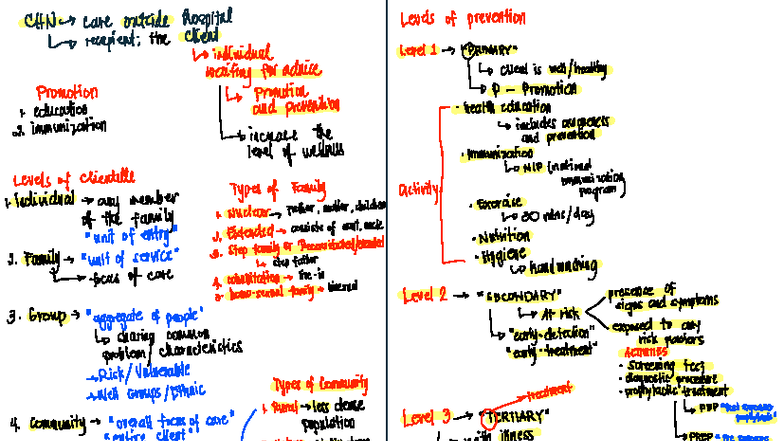 CHN → care outside hospital
↳ recipient: the client
↳ individual
waiting for advice
↳ Promotion
and prevention
↳ increase the
level of wellness
Promotion
1. education
2. immunization
Levels of clientele
1. Individual → any member
of the family
"unit of entry"
2. Family → "unit of service"
↳ focus of care
3. Group → "aggregate of people"
↳ sharing common
problem / characteristics
→ Risk / Vulnerable
→ Well Groups / Ethnic
4. Community → "overall focus of care"
"entire client"
Types of Family
1. Nuclear → father, mother, children
2. Extended → consists of aunt, uncle
3. Step family or Reconstituted/blended
↳ step father
4. cohabitation → live-in
5. homo-sexual family →
Types of Community
1. Rural → less dense
population
Levels of prevention
Level 1 → "PRIMARY"
↳ client is well/healthy
↳ P - Promotion
Activity
• health education
↳ includes awareness
and prevention
• Immunization
↳ NIP (national
immunization
program)
• Exercise
↳ 30 mins/day
• Nutrition
• Hygiene
↳ handwashing
Level 2 → "SECONDARY"
↳ At risk
presence of
signs and symptoms
exposed to any
risk factors
↳ "early-detection"
"early-treatment"
Activities
• Screening test
• diagnostic procedure
• prophylactic treatment
↳ PEP
↳ PREP
treatment
Level 3 → "TERTIARY"
with illness